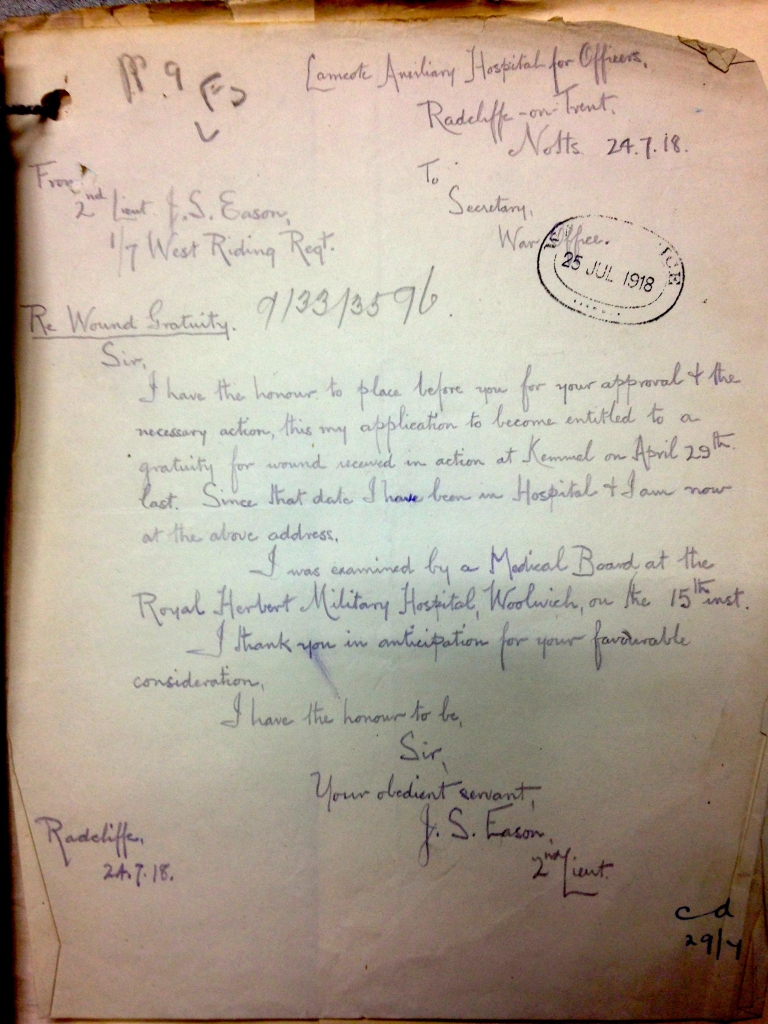 PP. 9
Lamcote Auxiliary Hospital for Officers,
Radcliffe-on-Trent.
Notts. 24.7.18.
From
2nd Lieut. J. S. Eason,
1/7 West Riding Regt.
To
Secretary,
War Office.
25 JUL 1918
Re Wound Gratuity. 9/33/3596.
Sir,
I have the honour to place before you for your approval & the
necessary action, this my application to become entitled to a
gratuity for wound received in action at Kemmel on April 29th
last. Since that date I have been in Hospital & I am now
at the above address.
I was examined by a Medical Board at the
Royal Herbert Military Hospital, Woolwich, on the 15th inst.
I thank you in anticipation for your favourable
consideration,
I have the honour to be,
Sir,
Your obedient servant,
J. S. Eason,
2nd Lieut.
Radcliffe,
24.7.18.
cd
29/7